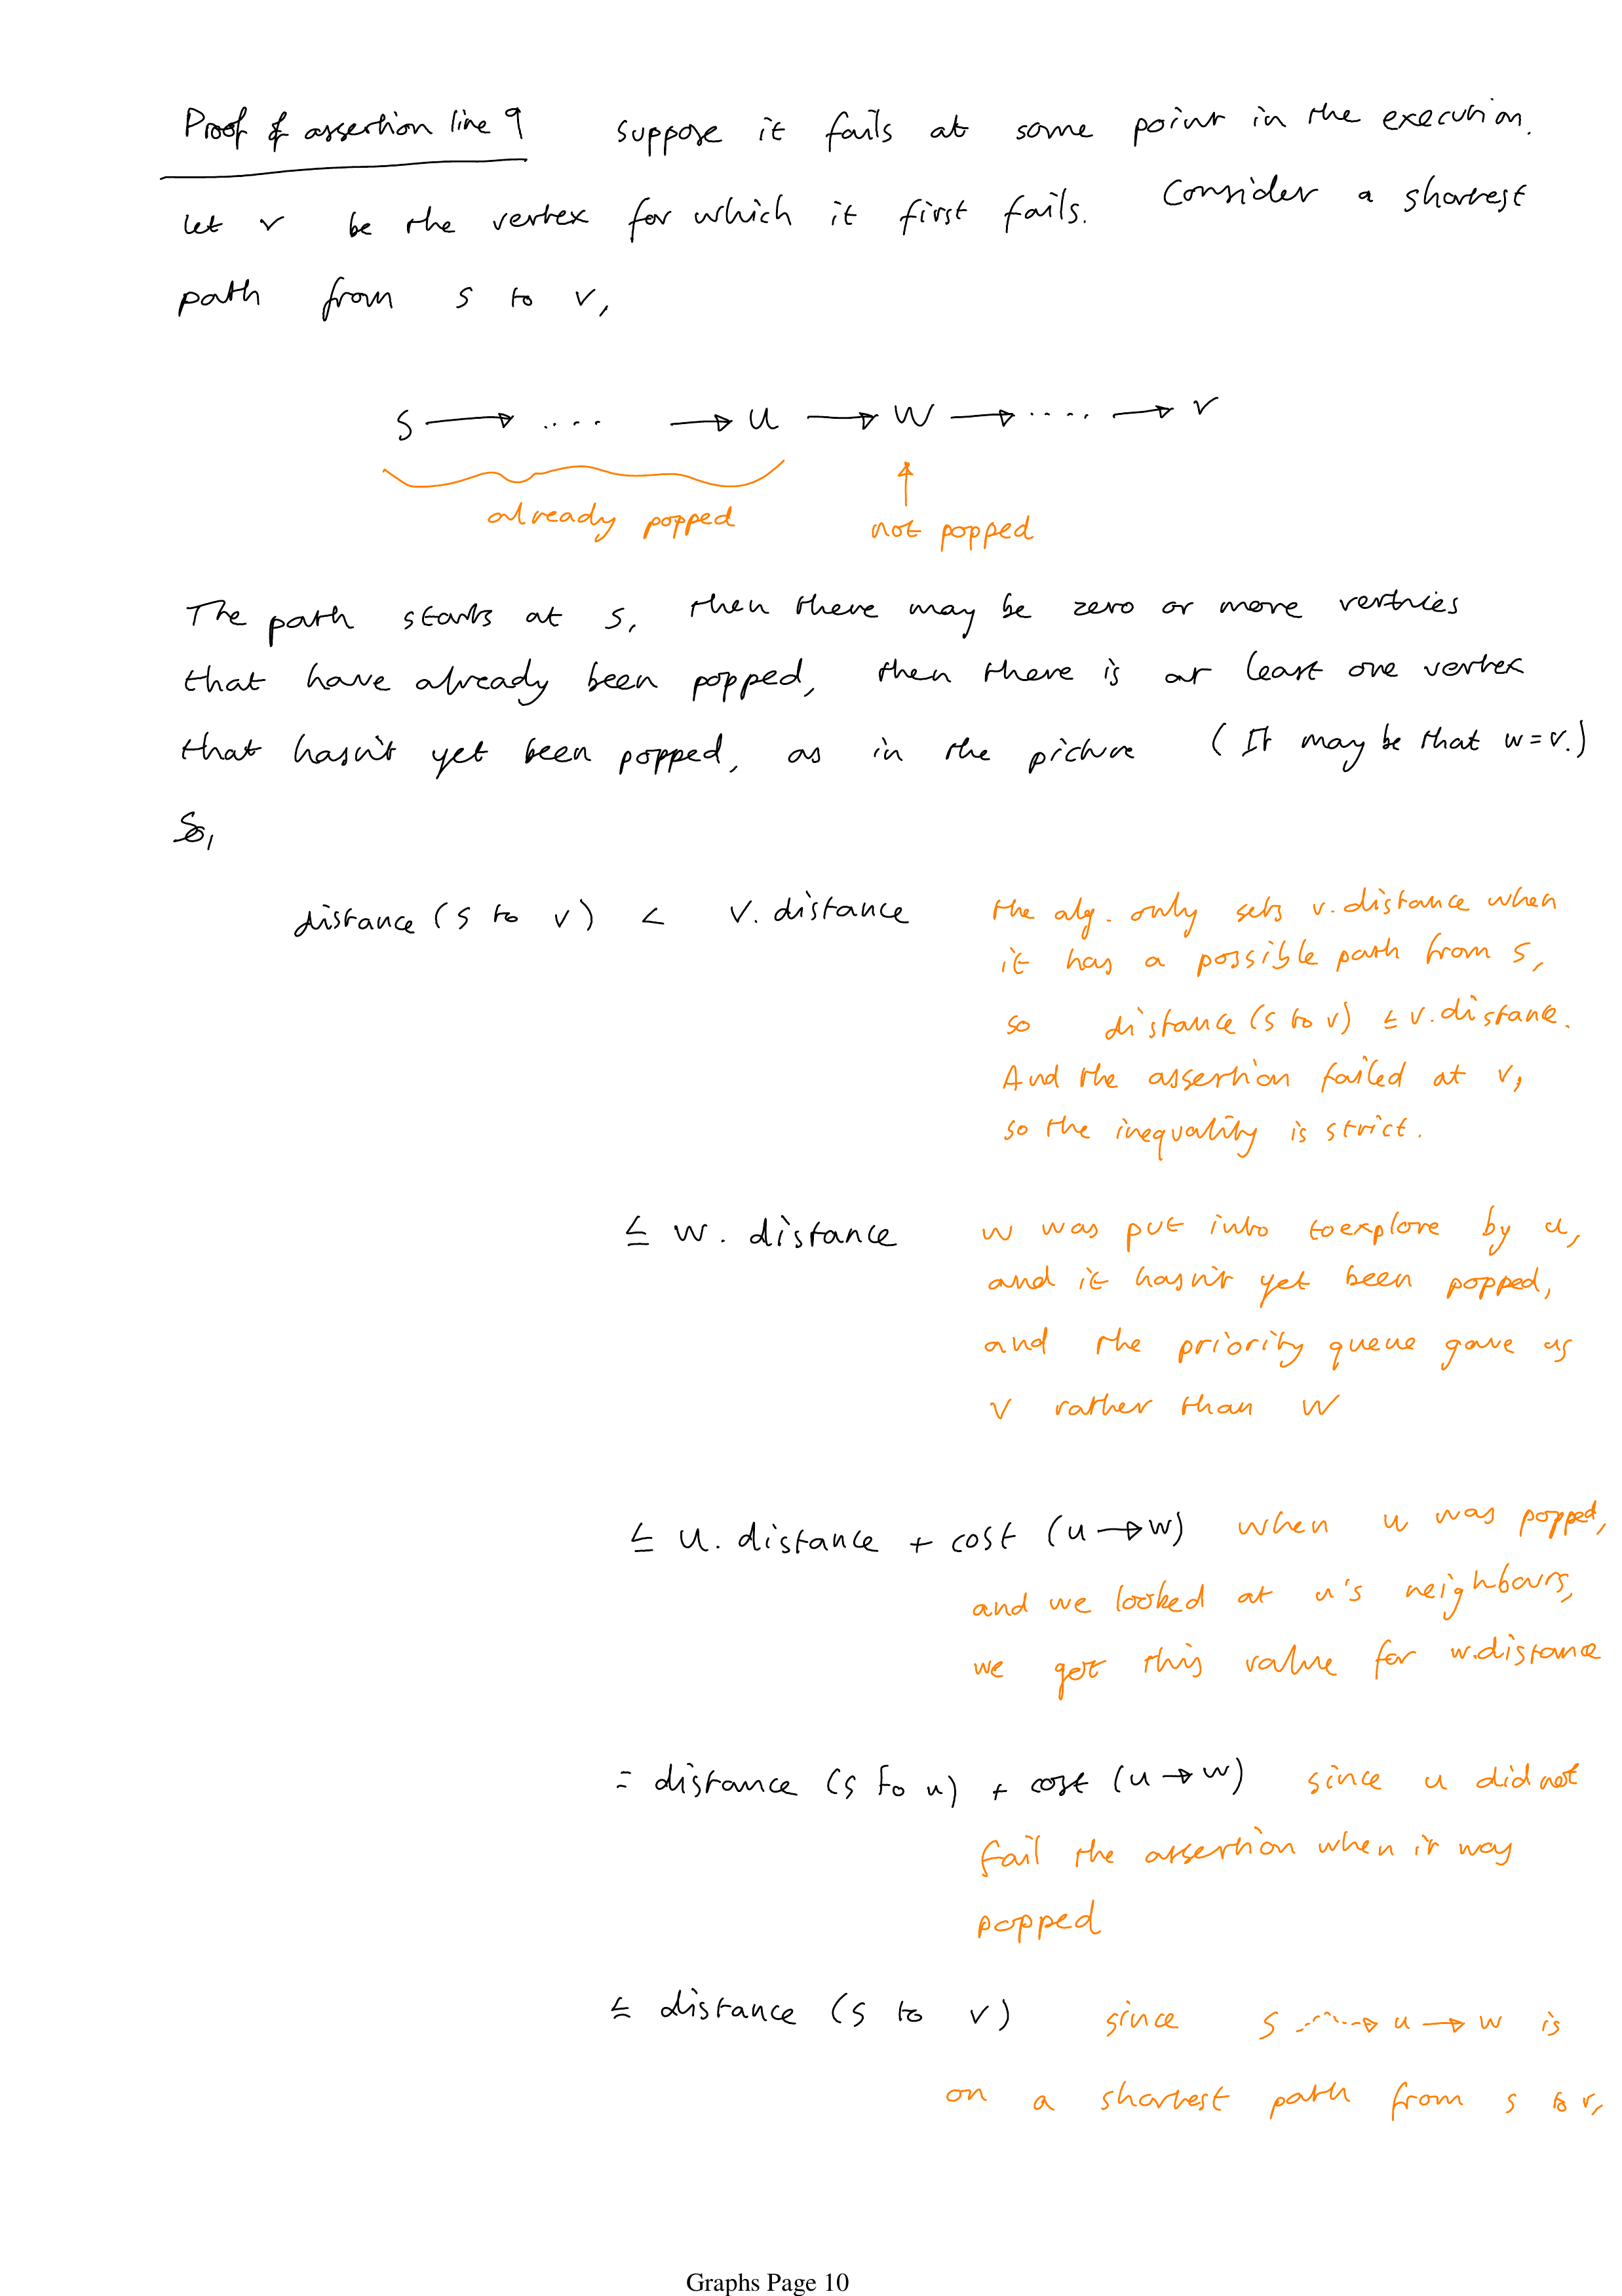 Proof of assertion line 9 suppose it fails at some point in the execution.
let v be the vertex for which it first fails. Consider a shortest
path from s to v,
s → .... → u → w → .... → v
already popped
not popped
The path starts at s, then there may be zero or more vertices
that have already been popped, then there is at least one vertex
that hasn't yet been popped, as in the picture (It may be that w=v.)
So,
distance (s to v) < v.distance the alg. only sets v.distance when
it has a possible path from s,
so distance (s to v) ≤ v.distance.
And the assertion failed at v,
so the inequality is strict.
≤ w.distance w was put into toexplore by u,
and it hasn't yet been popped,
and the priority queue gave us
v rather than w
≤ u.distance + cost (u → w) when u was popped,
and we looked at u's neighbours,
we got this value for w.distance
= distance (s to u) + cost (u → w) since u did not
fail the assertion when it was
popped
≤ distance (s to v) since s ⇢ u → w is
on a shortest path from s to v,
Graphs Page 10